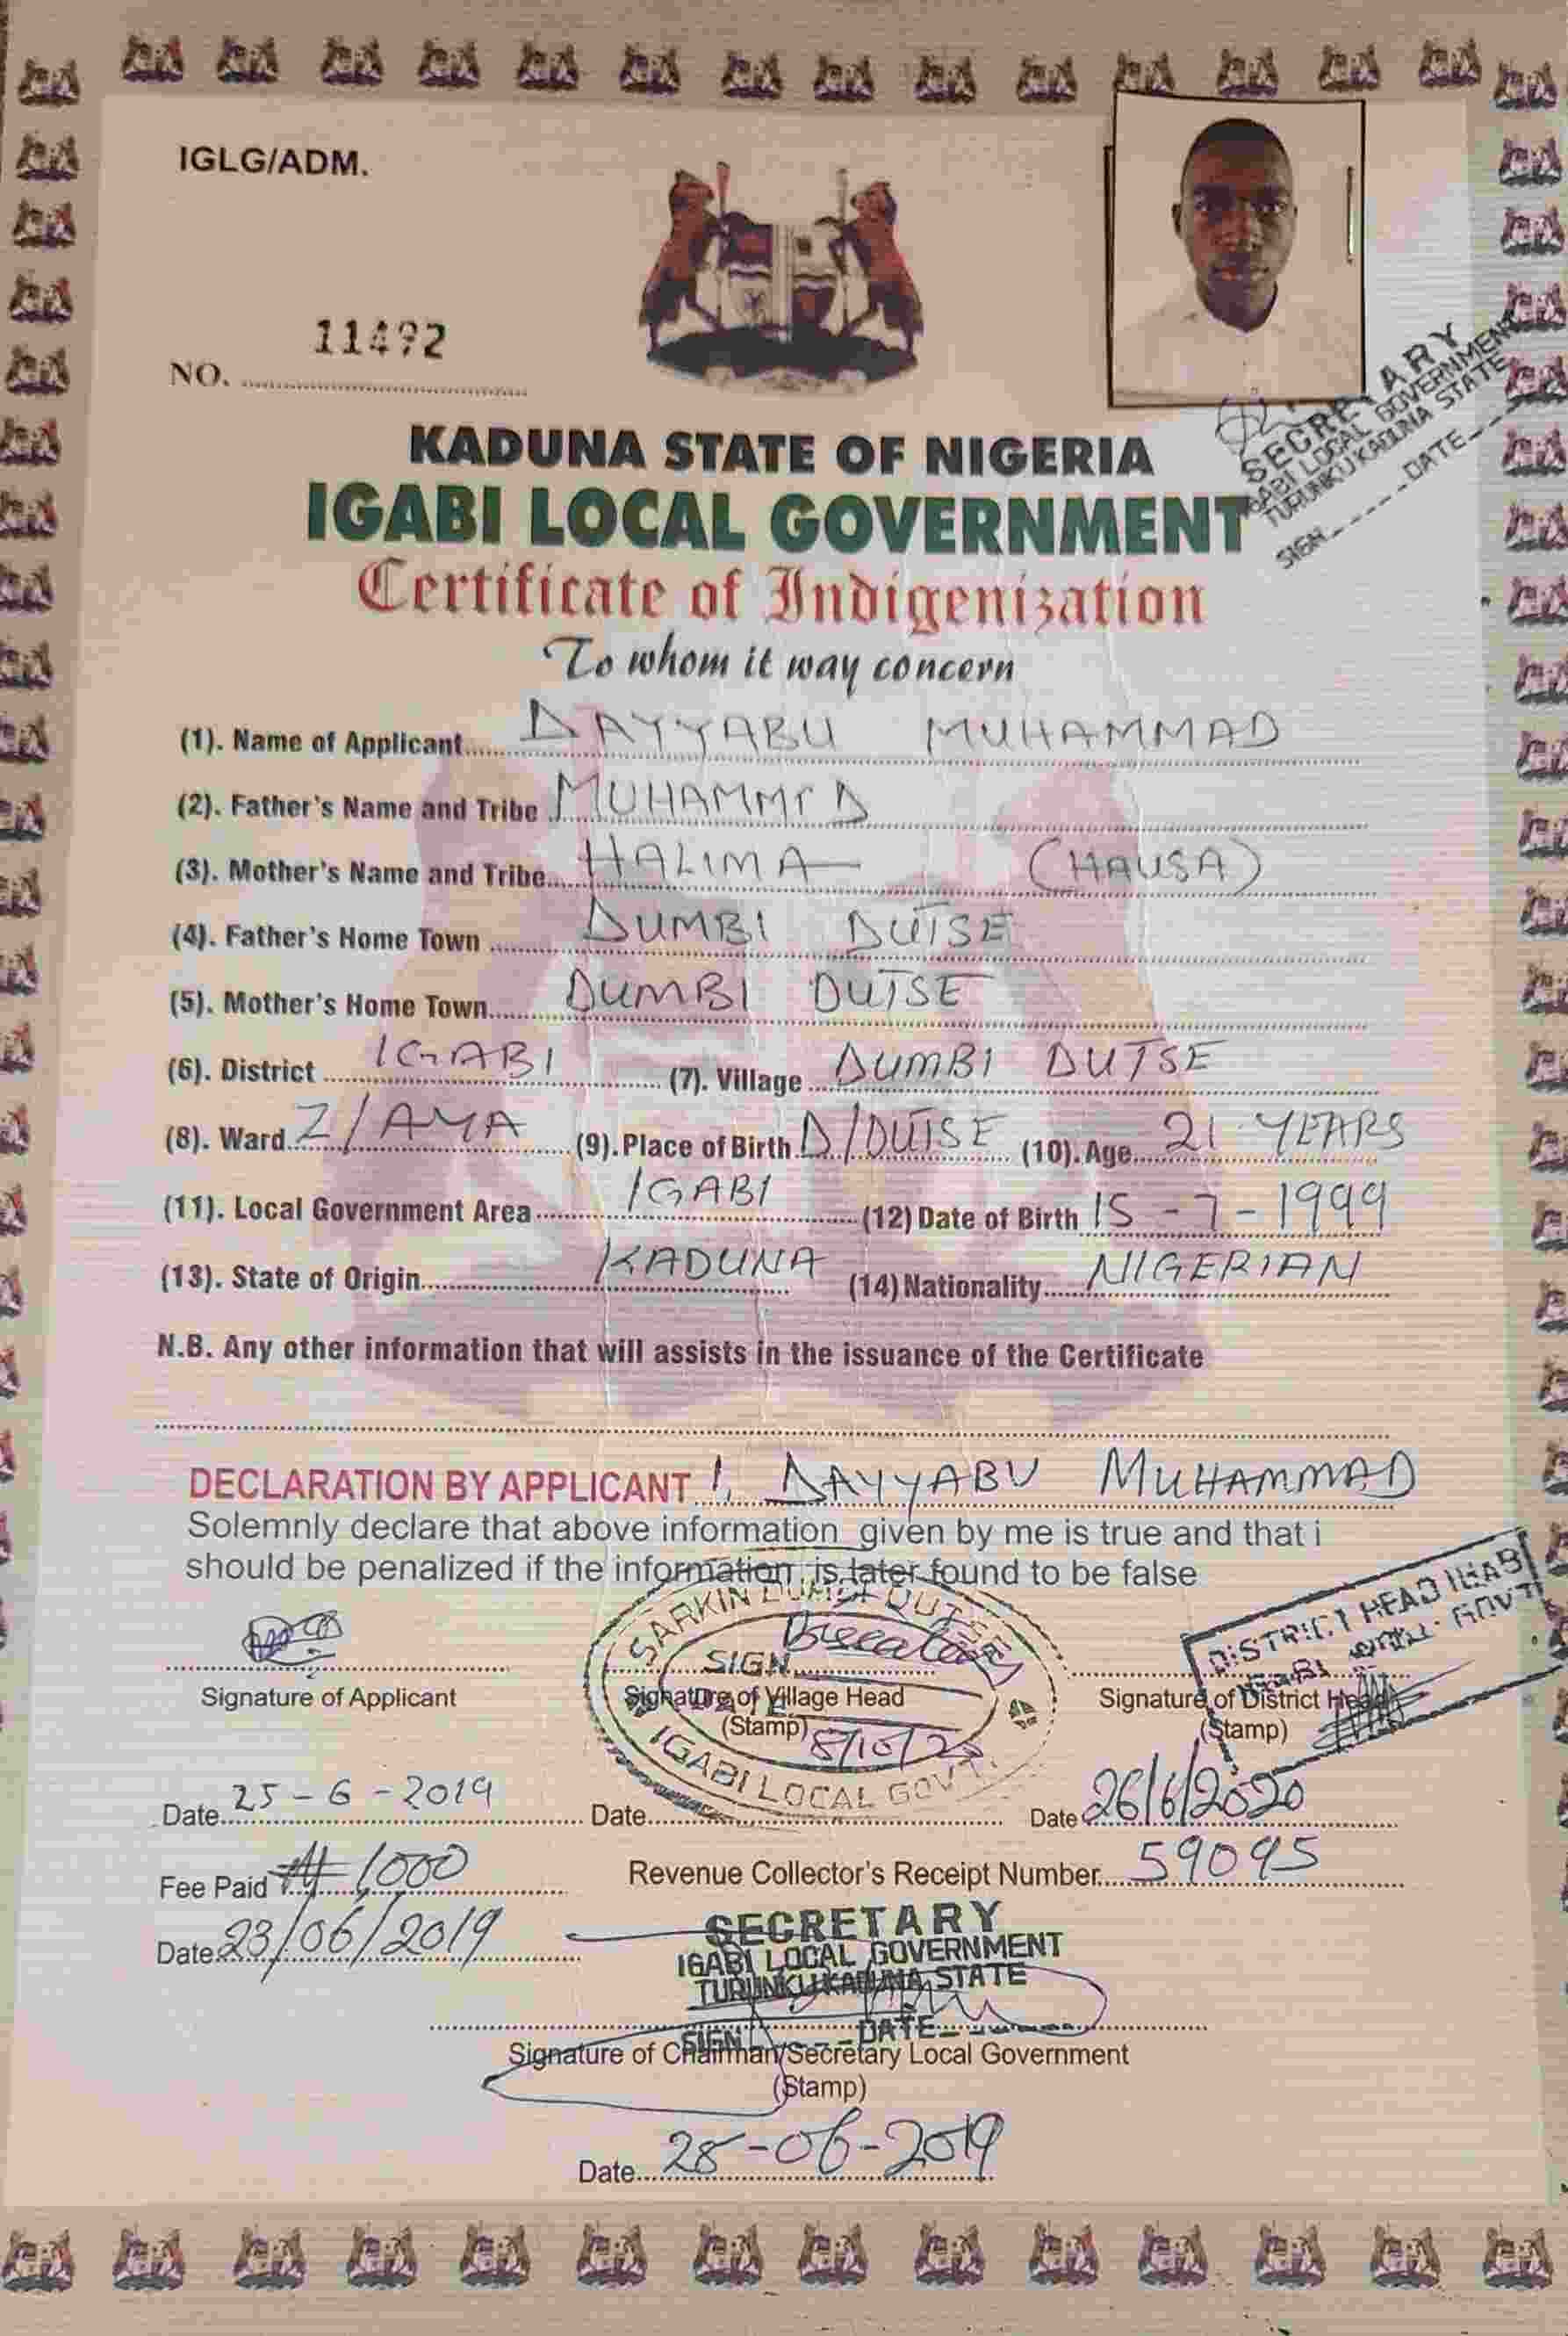 IGLG/ADM.
NO. 11492
KADUNA STATE OF NIGERIA
IGABI LOCAL GOVERNMENT
Certificate of Indigenization
To whom it way concern
SECRETARY
IGABI LOCAL GOVERNMENT
TURUNKU KADUNA STATE
SIGN DATE
(1). Name of Applicant DAYYABU MUHAMMAD
(2). Father's Name and Tribe MUHAMMED
(3). Mother's Name and Tribe HALIMA (HAUSA)
(4). Father's Home Town DUMBI DUTSE
(5). Mother's Home Town DUMBI DUTSE
(6). District IGABI (7). Village DUMBI DUTSE
(8). Ward Z/AYA (9). Place of Birth D/DUTSE (10). Age 21 YEARS
(11). Local Government Area IGABI (12) Date of Birth 15-7-1999
(13). State of Origin KADUNA (14) Nationality NIGERIAN
N.B. Any other information that will assists in the issuance of the Certificate
DECLARATION BY APPLICANT I, DAYYABU MUHAMMAD
Solemnly declare that above information given by me is true and that i
should be penalized if the information is later found to be false
SARKIN DUMBI DUTSE
SIGN
IGABI LOCAL GOVT.
DISTRICT HEAD IGABI
IGABI LOCAL GOVT
Signature of Applicant Signature of Village Head Signature of District Head
(Stamp) 8/10/20 (Stamp)
Date 25-6-2019 Date Date 26/6/2020
Fee Paid ₦ 1000 Revenue Collector's Receipt Number 59095
Date 23/06/2019
SECRETARY
IGABI LOCAL GOVERNMENT
TURUNKU KADUNA STATE
SIGN DATE
Signature of Chairman/Secretary Local Government
(Stamp)
Date 28-06-2019